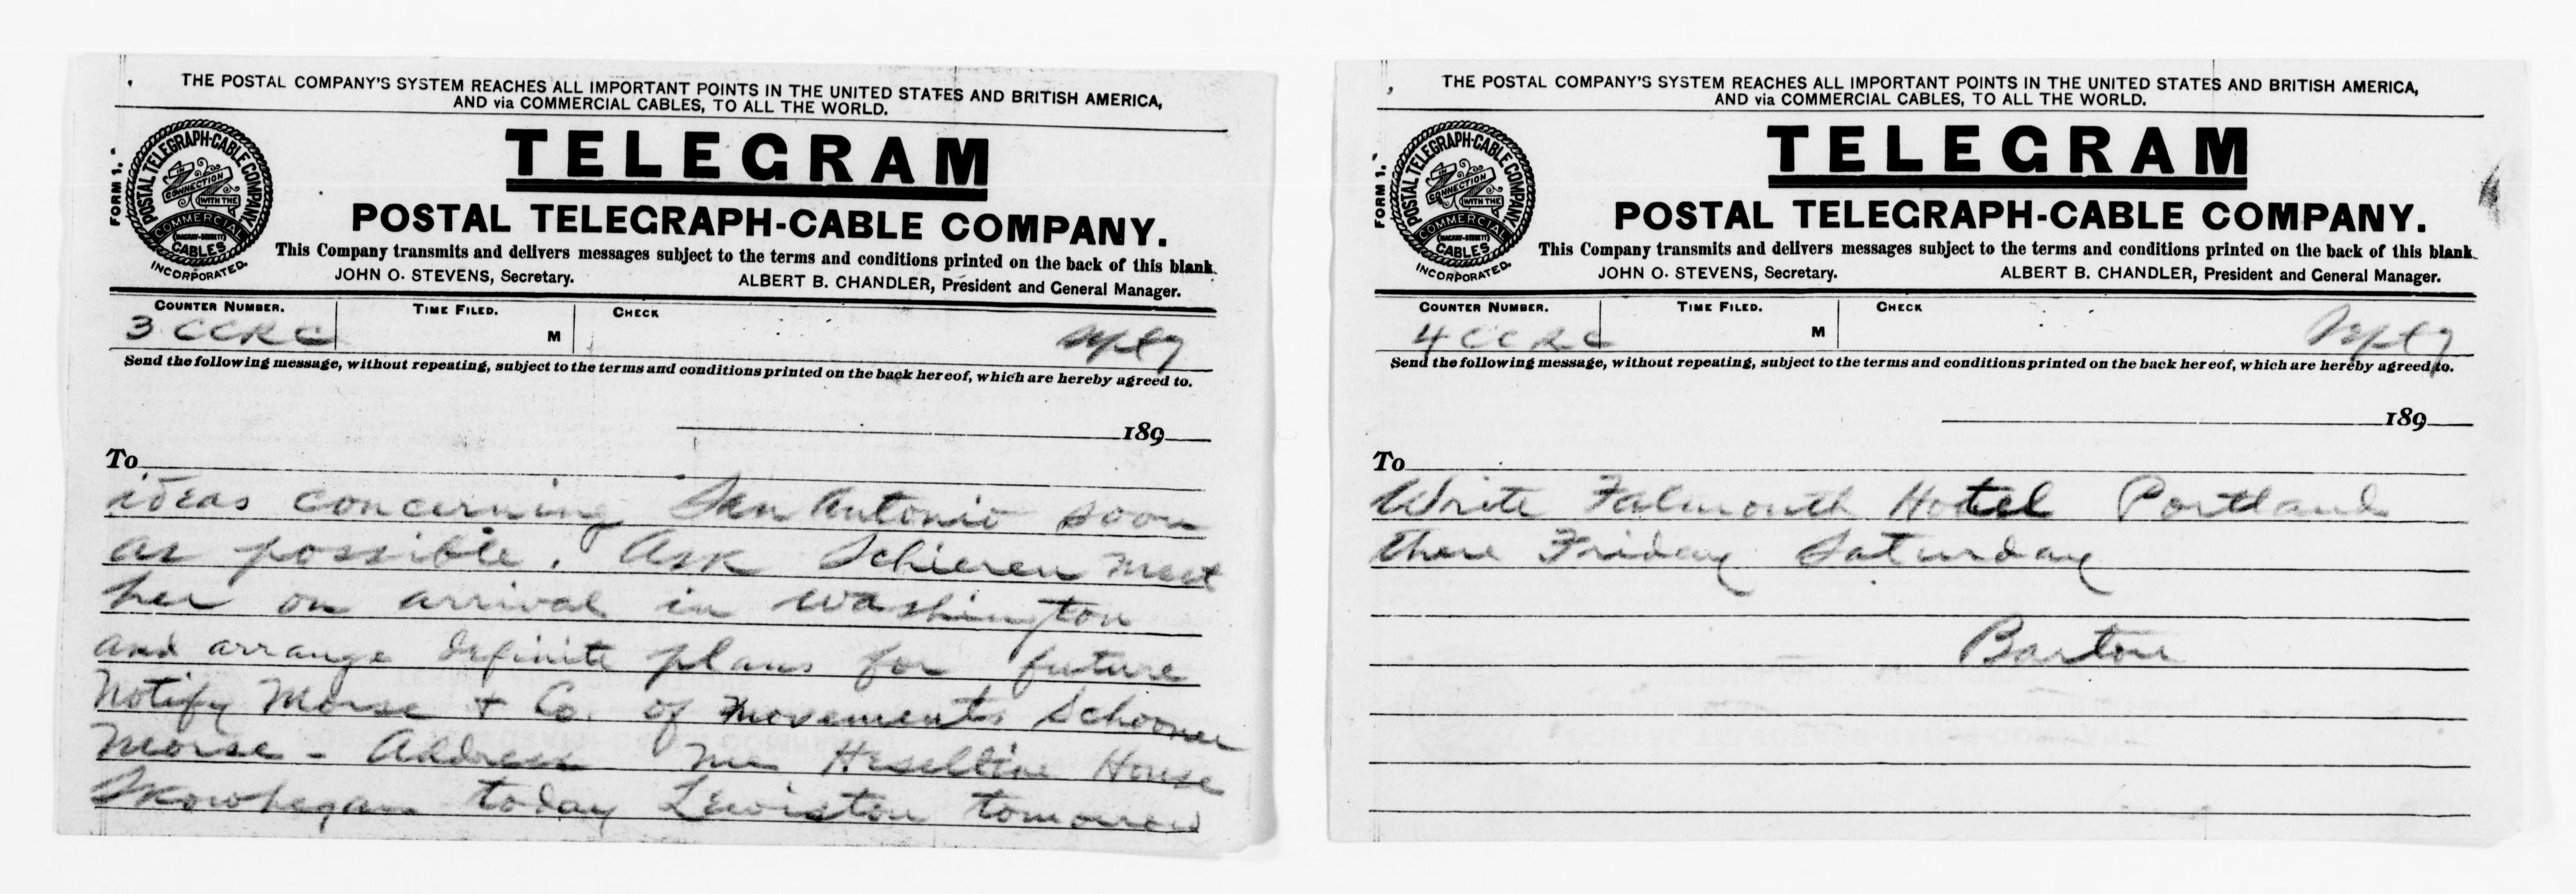 THE POSTAL COMPANY'S SYSTEM REACHES ALL IMPORTANT POINTS IN THE UNITED STATES AND BRITISH AMERICA,
AND via COMMERCIAL CABLES, TO ALL THE WORLD.
FORM 1.
POSTAL TELEGRAPH-CABLE COMPANY
IN CONNECTION WITH THE
COMMERCIAL
(MACKAY-BENNETT)
CABLES
INCORPORATED.
TELEGRAM
POSTAL TELEGRAPH-CABLE COMPANY.
This Company transmits and delivers messages subject to the terms and conditions printed on the back of this blank.
JOHN O. STEVENS, Secretary. ALBERT B. CHANDLER, President and General Manager.
COUNTER NUMBER. TIME FILED. CHECK
3 CCRC M
Send the following message, without repeating, subject to the terms and conditions printed on the back hereof, which are hereby agreed to.
189
To
ideas concerning San Antonio soon
as possible. Ask Schieren meet
her on arrival in Washington
and arrange definite plans for future
Notify Morse & Co. of movements Schooner
Morse - Address me Heselltine House
Skowhegan today Lewiston tomorrow
THE POSTAL COMPANY'S SYSTEM REACHES ALL IMPORTANT POINTS IN THE UNITED STATES AND BRITISH AMERICA,
AND via COMMERCIAL CABLES, TO ALL THE WORLD.
FORM 1.
POSTAL TELEGRAPH-CABLE COMPANY
IN CONNECTION WITH THE
COMMERCIAL
(MACKAY-BENNETT)
CABLES
INCORPORATED.
TELEGRAM
POSTAL TELEGRAPH-CABLE COMPANY.
This Company transmits and delivers messages subject to the terms and conditions printed on the back of this blank.
JOHN O. STEVENS, Secretary. ALBERT B. CHANDLER, President and General Manager.
COUNTER NUMBER. TIME FILED. CHECK
4 CCRC M
Send the following message, without repeating, subject to the terms and conditions printed on the back hereof, which are hereby agreed to.
189
To
Write Falmouth Hotel Portland
there Friday Saturday
Barton